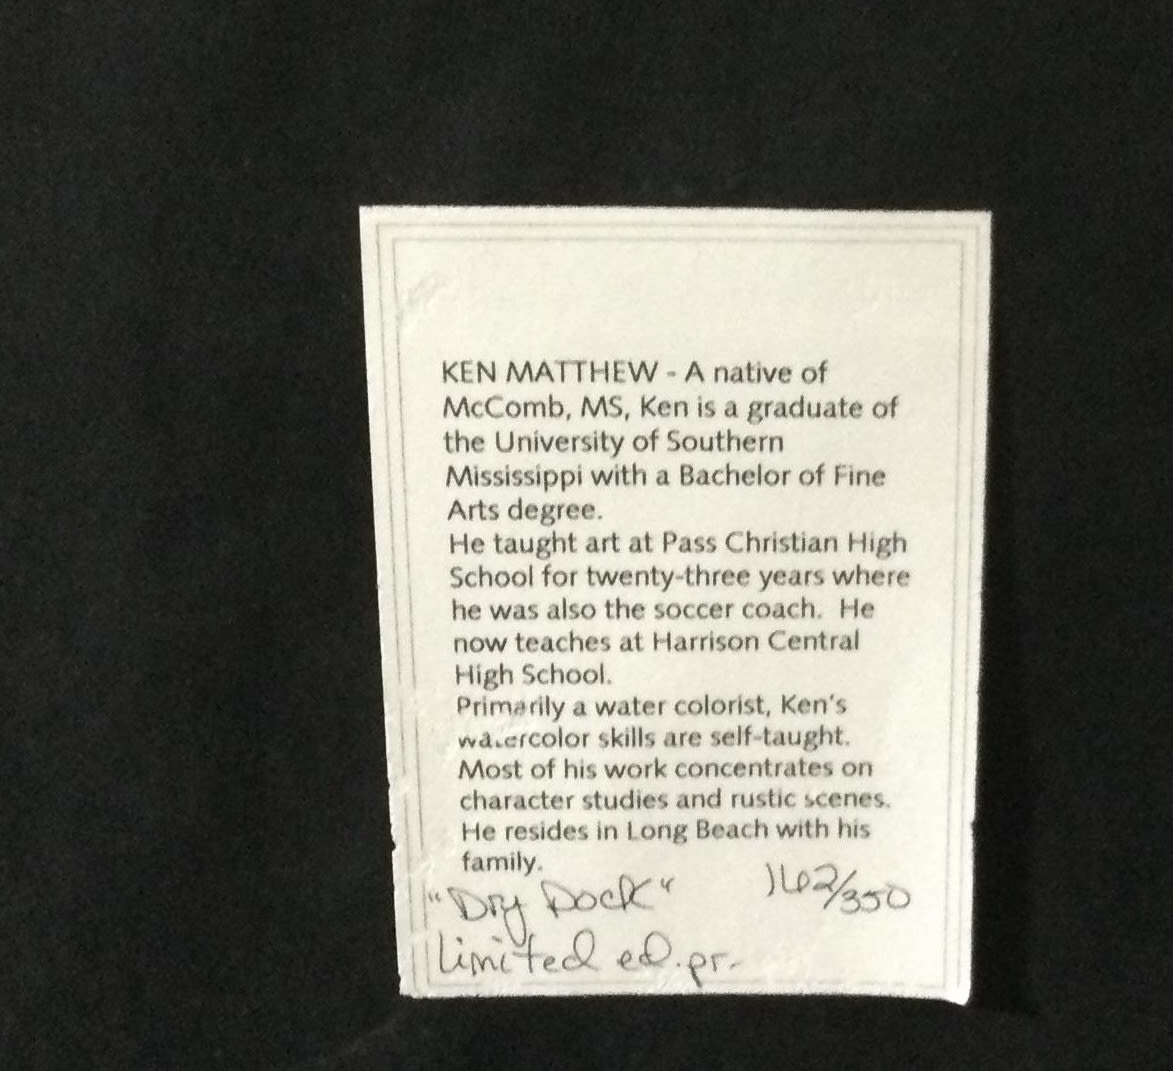 KEN MATTHEW - A native of
McComb, MS, Ken is a graduate of
the University of Southern
Mississippi with a Bachelor of Fine
Arts degree.
He taught art at Pass Christian High
School for twenty-three years where
he was also the soccer coach. He
now teaches at Harrison Central
High School.
Primarily a water colorist, Ken's
watercolor skills are self-taught.
Most of his work concentrates on
character studies and rustic scenes.
He resides in Long Beach with his
family.
"Dry Dock" 162/350
Limited ed. pr.